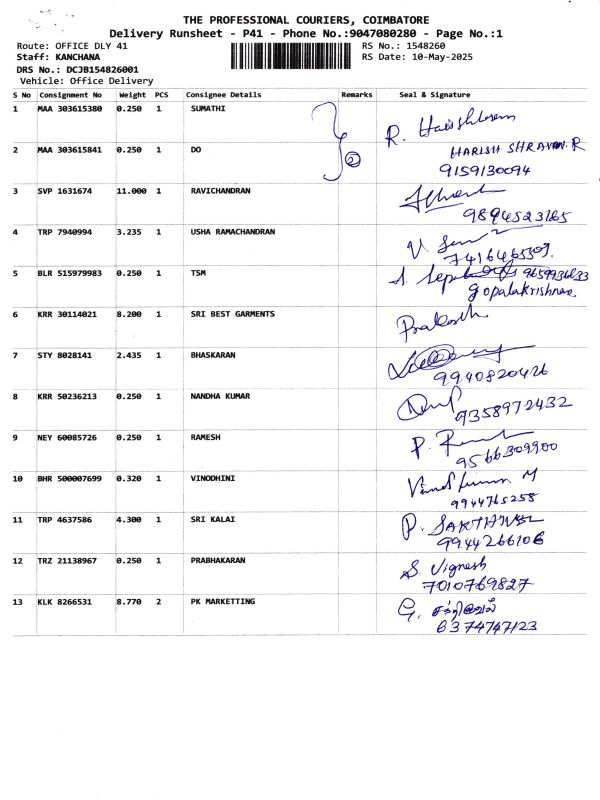 THE PROFESSIONAL COURIERS, COIMBATORE
Delivery Runsheet - P41 - Phone No.:9047080280 - Page No.:1
Route: OFFICE DLY 41 RS No.: 1548260
Staff: KANCHANA RS Date: 10-May-2025
DRS No.: DCJB154826001
Vehicle: Office Delivery
S No Consignment No Weight PCS Consignee Details Remarks Seal & Signature
1 MAA 303615380 0.250 1 SUMATHI R.
2 MAA 303615841 0.250 1 DO 2 HARISH SHRAVAN.R
9159130094
3 SVP 1631674 11.000 1 RAVICHANDRAN
9894523165
4 TRP 7940994 3.235 1 USHA RAMACHANDRAN
7416465309.
5 BLR 515979983 0.250 1 TSM
gopalakrishnan
6 KRR 30114021 8.200 1 SRI BEST GARMENTS Prakash
7 STY 8028141 2.435 1 BHASKARAN
9940820426
8 KRR 50236213 0.250 1 NANDHA KUMAR
9358972432
9 NEY 60085726 0.250 1 RAMESH P.
9566309900
10 BHR 500007699 0.320 1 VINODHINI
9944765258
11 TRP 4637586 4.300 1 SRI KALAI P. SAKTHIVEL
9944266106
12 TRZ 21138967 0.250 1 PRABHAKARAN S. Vignesh
7010769827
13 KLK 8266531 8.770 2 PK MARKETTING G. சக்திவேல்
6374747123